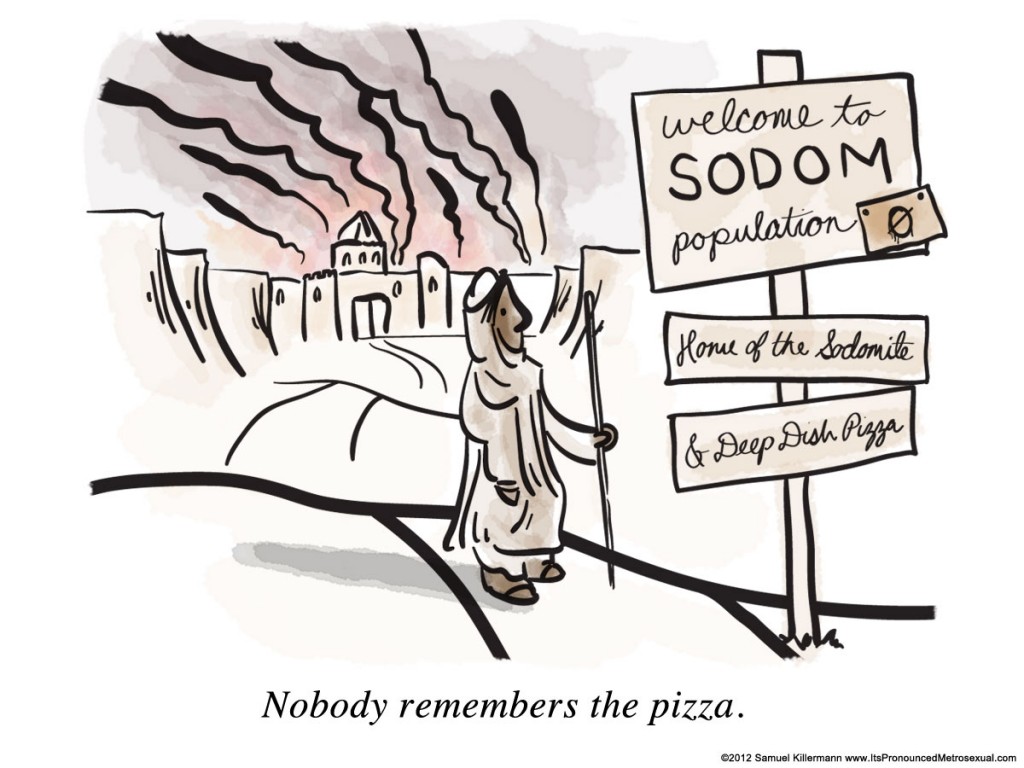 welcome to
SODOM
population Ø
Home of the Sodomite
& Deep Dish Pizza
Nobody remembers the pizza.
©2012 Samuel Killermann www.ItsPronouncedMetrosexual.com